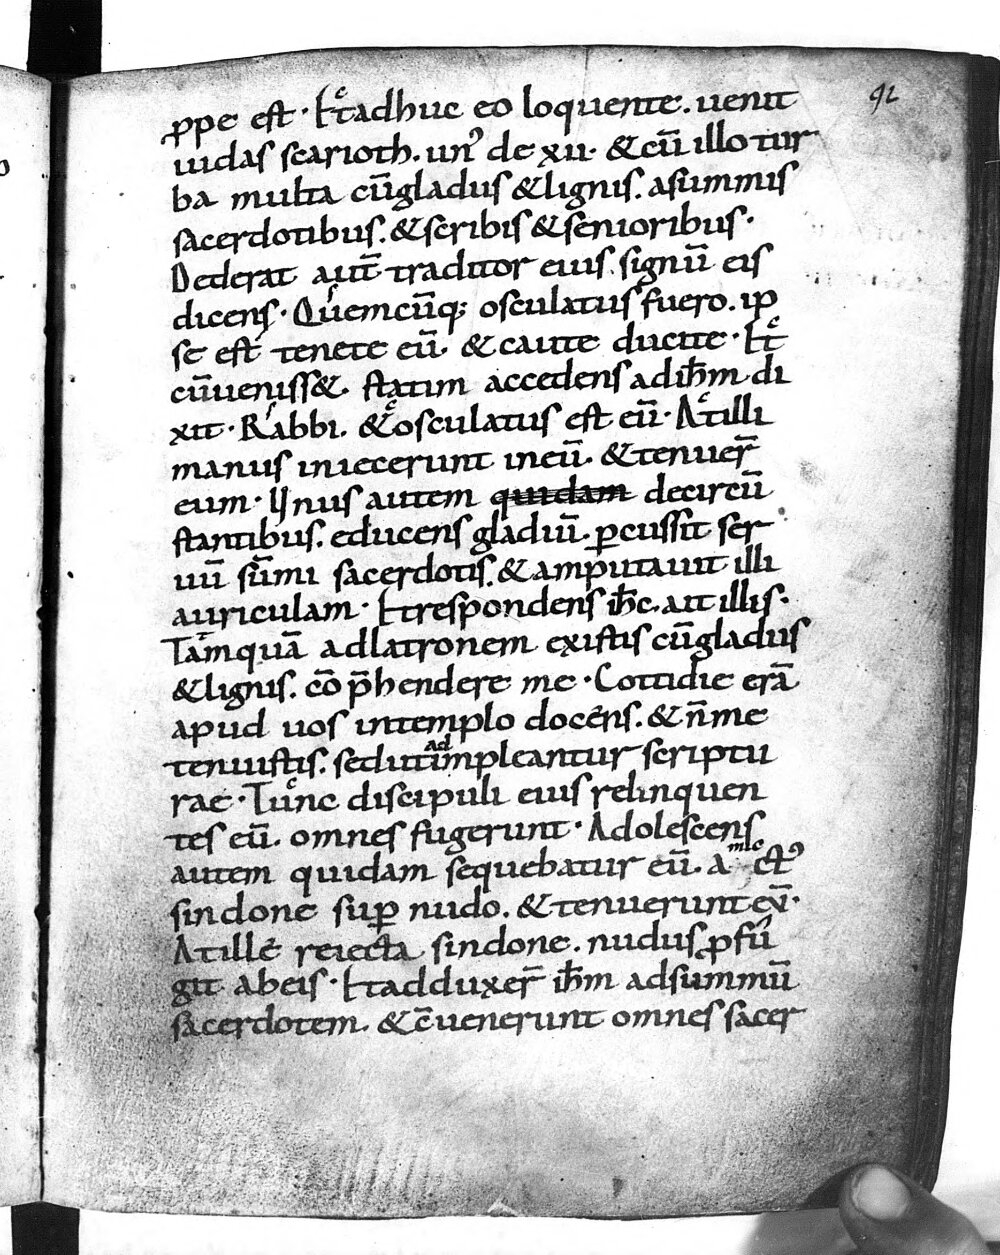 92
ꝓpe est. Et adhuc eo loquente. uenit
iudas scarioth. un᾽ de xii. & cū illo tur
ba multa cū gladiis & lignis. a summis
sacerdotibus. & scribis & senioribus.
Dederat aut̄ traditor eius signū eis
dicens. Quemcūq; osculatus fuero. ip
se est tenete eū. & caute ducite. Et
cū ueniss&. statim accedens ad ih̄m di
xit. Rabbi. & osculatus est eū. At illi
manus iniecerunt in eū. & tenuer̄
eum. Unus autem quidam de circū
stantibus. educens gladiū. ꝑcussit ser
uū sūmi sacerdotis. & amputauit illi
auriculam. Et respondens ih̄c. ait illis.
Tamquā ad latronem existis cū gladiis
& lignis. cō p̄hendere me. Cottidie erā
apud uos in templo docens. & n̄ me
tenuistis. sed ut adimpleantur scriptu
rae. Tunc discipuli eius relinquen
tes eū. omnes fugerunt. Adolescens
autem quidam sequebatur eū. amict᾽
sindone suꝑ nudo. & tenuerunt eū.
At ille reiecta sindone. nudus ꝓfu
git ab eis. Et adduxer̄ ih̄m ad summū
sacerdotem. & c̄uenerunt omnes sacer